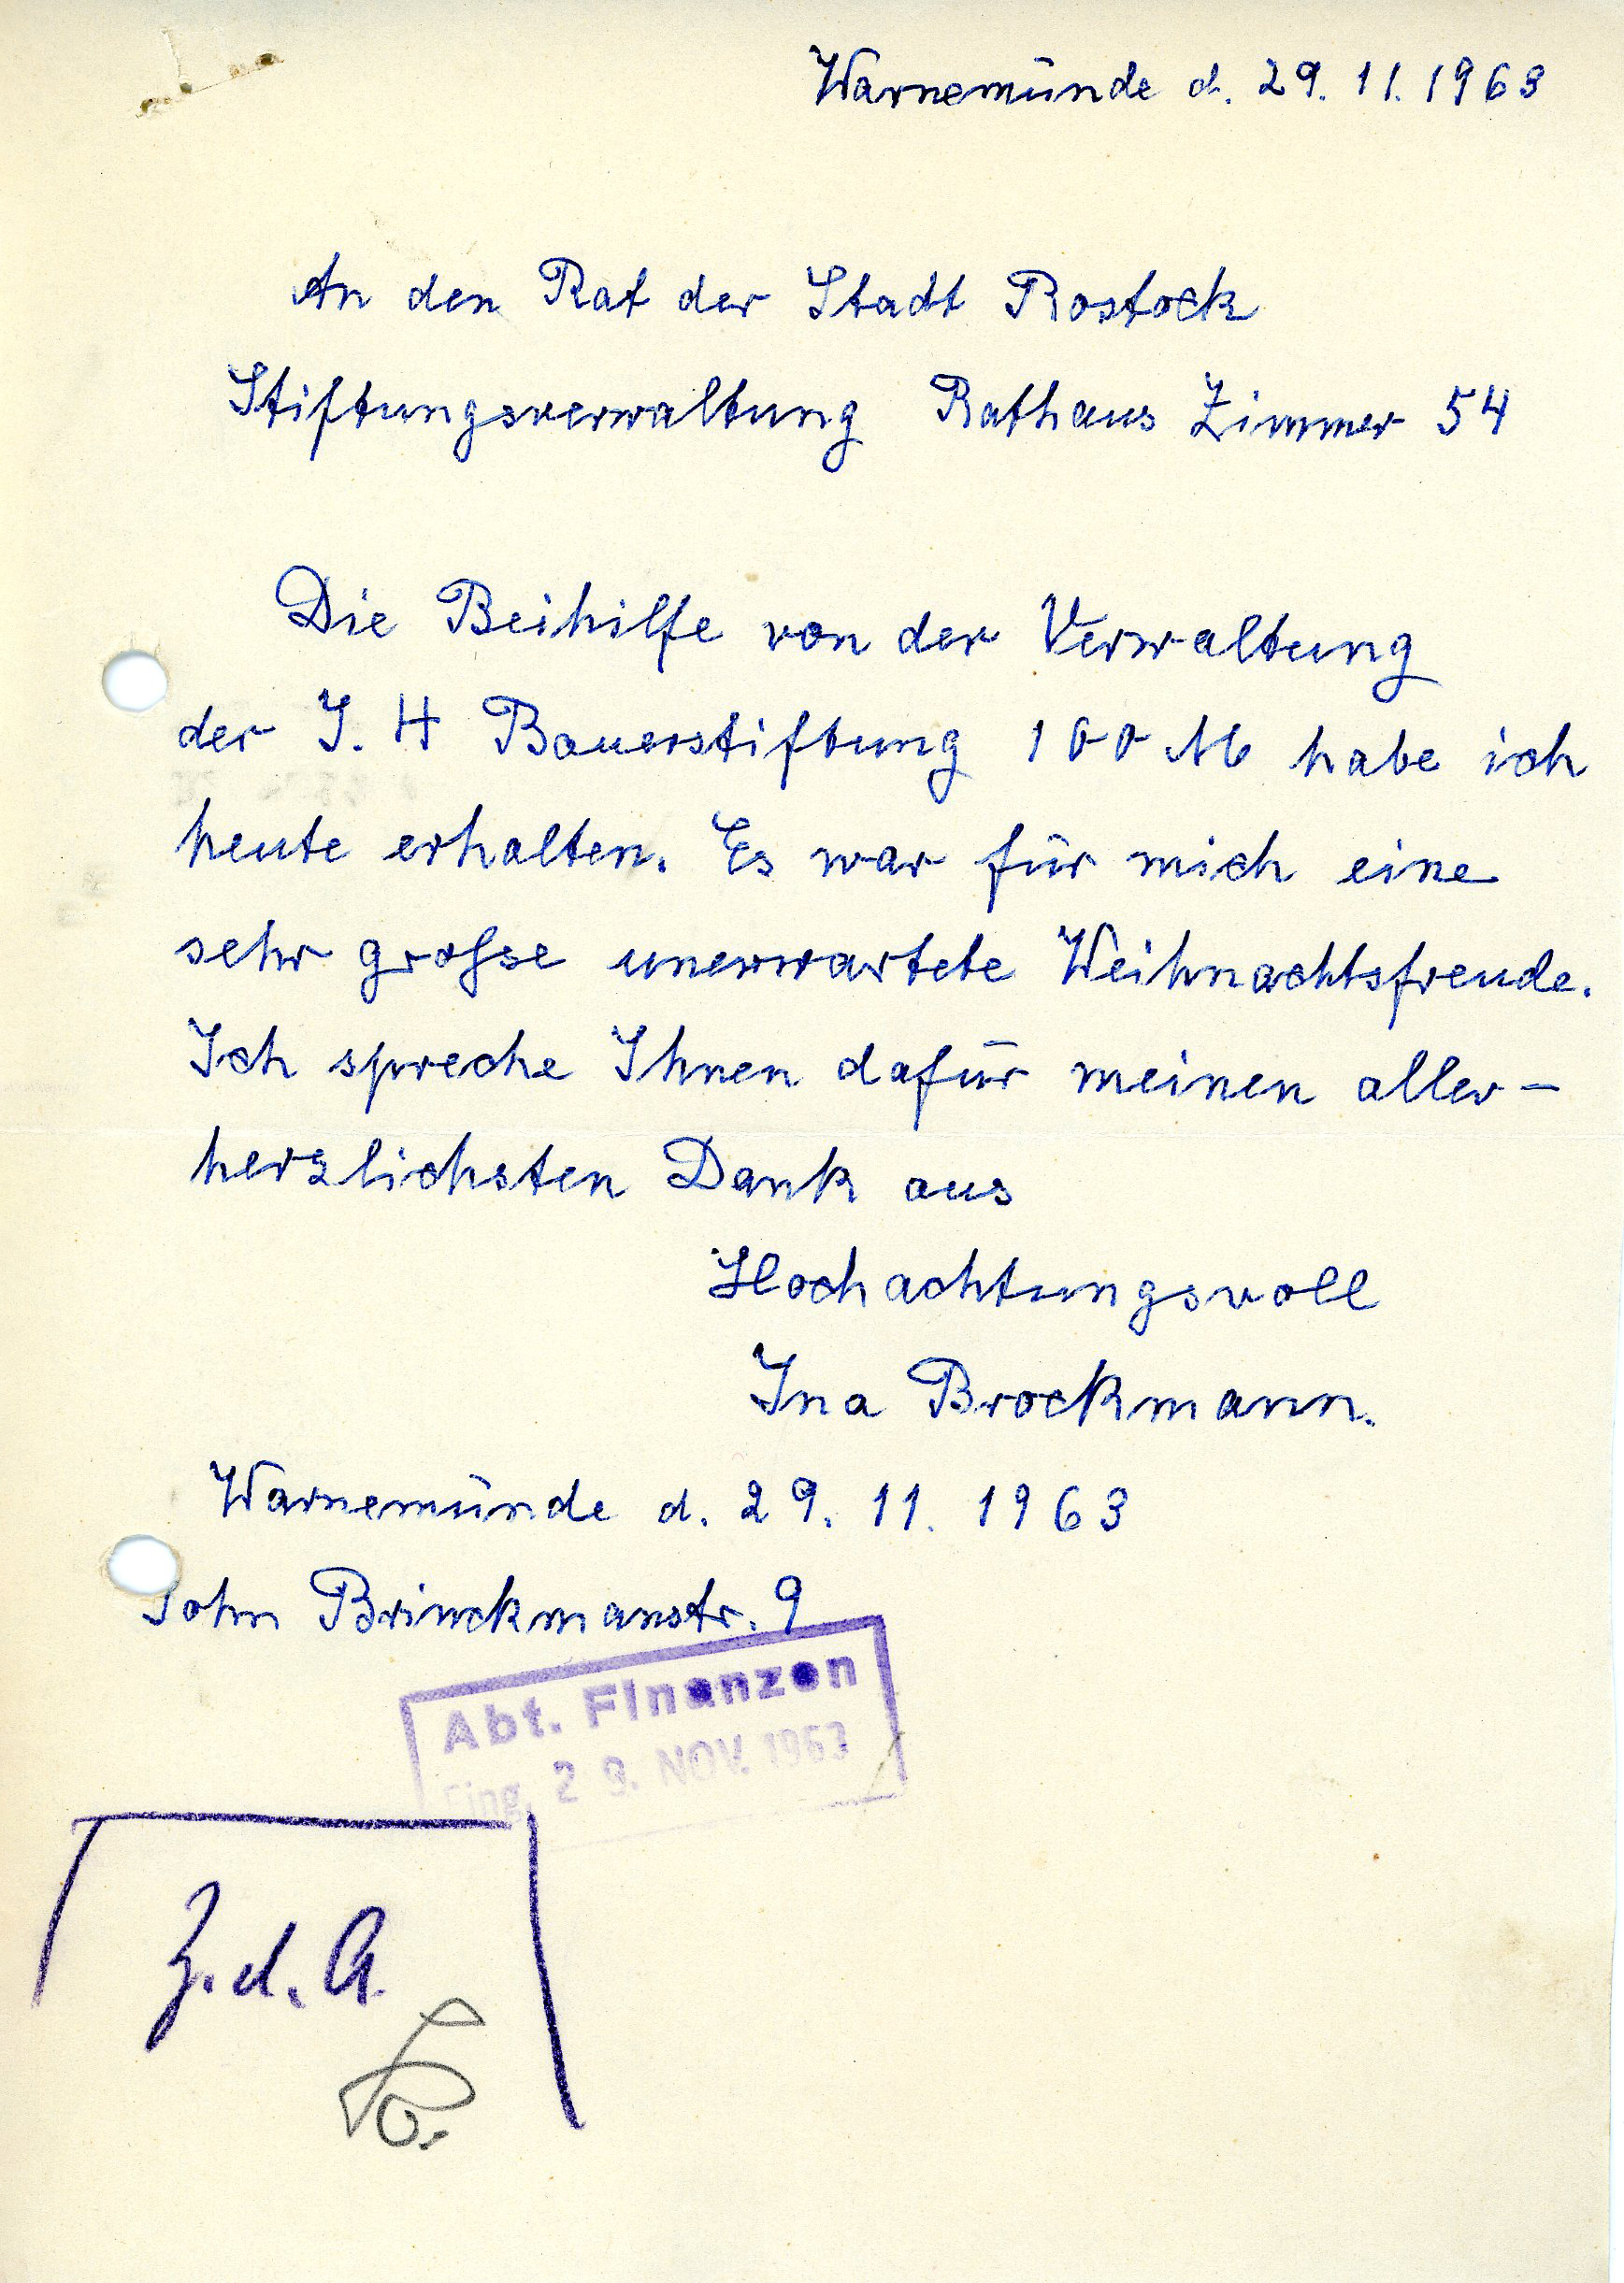 Warnemünde d. 29. 11. 1963
An den Rat der Stadt Rostock
Stiftungsverwaltung Rathaus Zimmer 54
Die Beihilfe von der Verwaltung
der J. H Bauerstiftung 100 M habe ich
heute erhalten. Es war für mich eine
sehr grosse unerwartete Weihnachtsfreude.
Ich spreche Ihnen dafür meinen aller-
herzlichsten Dank aus
Hochachtungsvoll
Ina Brockmann.
Warnemünde d. 29. 11. 1963
John Brinckmanstr. 9
Abt. Finanzen
Eing. 29. NOV. 1963
Z. d. A.